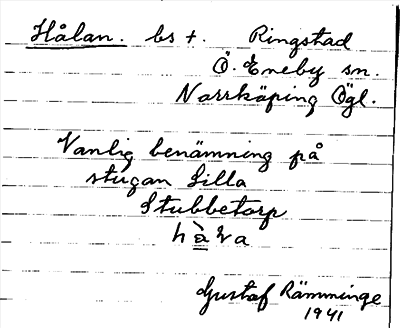 Hålan. bs t. Ringstad
Ö. Eneby sn.
Norrköping Ögl.
Vanlig benämning på
stugan Lilla
Stubbetorp
Gustaf Rämminge
1941